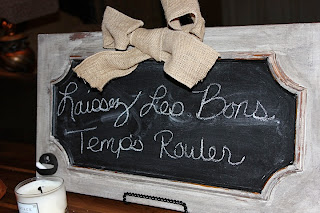 Laissez Les Bons
Temps Rouler